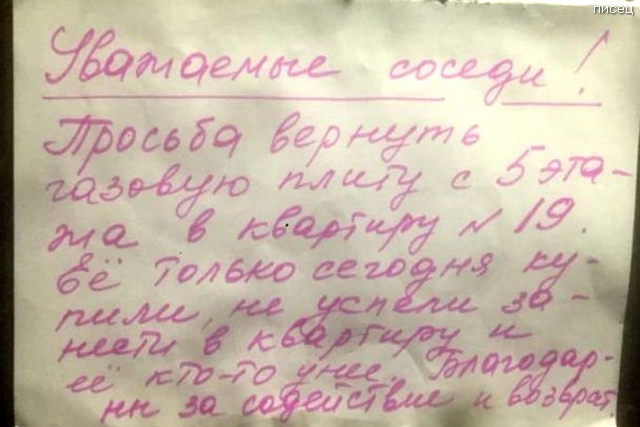 писец
Уважаемые соседи!
Просьба вернуть
газовую плиту с 5 эта-
жа в квартиру № 19.
Её только сегодня ку-
пили, не успели за-
нести в квартиру и
её кто-то унёс. Благодар-
ны за содействие и возврат.